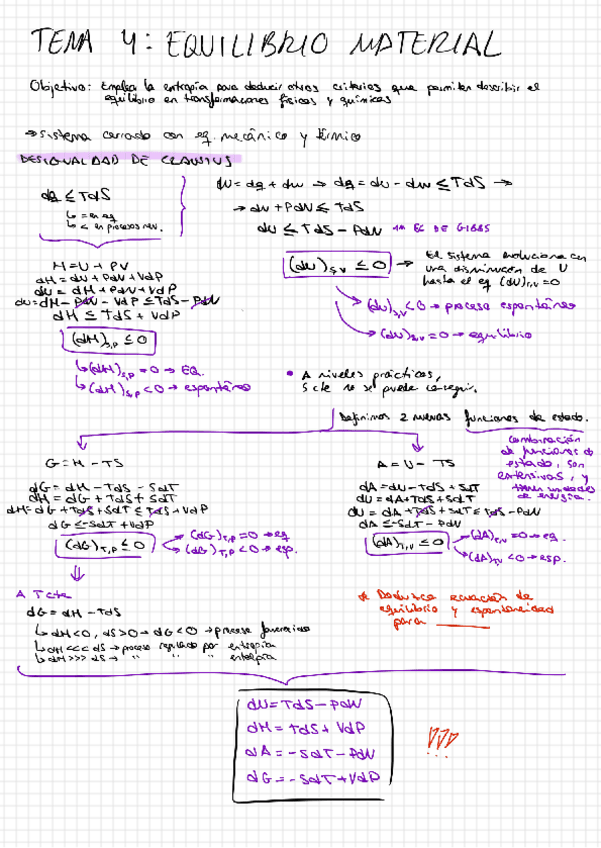 TEMA 4: EQUILIBRIO MATERIAL
Objetivo: Emplea la entropía para deducir otros criterios que permiten describir el
equilibrio en transformaciones físicas y químicas
→ Sistema cerrado con eq. mecánico y térmico
DESIGUALDAD DE CLAUSIUS
dq ≤ TdS
↳ = en eq
↳ < en procesos rev.
dU = dq + dw → dq = dU - dw ≤ TdS →
→ dU + PdV ≤ TdS
dU ≤ TdS - PdV EC DE GIBBS
(dU)S,V ≤ 0 → El sistema evoluciona con
una disminución de U
hasta el eq (dU)S,V = 0
→ (dU)S,V < 0 → proceso espontáneo
→ (dU)S,V = 0 → equilibrio
H = U + PV
dH = dU + PdV + VdP
dU = dH + PdV + VdP
dU = dH - PdV - VdP ≤ TdS - PdV
dH ≤ TdS + VdP
(dH)S,P ≤ 0
↳ (dH)S,P = 0 → EQ.
↳ (dH)S,P < 0 → espontáneo
• A niveles prácticos,
S cte no se puede conseguir.
Definimos 2 nuevas funciones de estado.
Combinación
de funciones de
estado, son
extensivas, y
tienen unidades
de energía.
G = H - TS
dG = dH - TdS - SdT
dH = dG + TdS + SdT
dH = dG + TdS + SdT ≤ TdS + VdP
dG ≤ -SdT + VdP
(dG)T,P ≤ 0
→ (dG)T,P = 0 → eq
→ (dG)T,P < 0 → esp.
A = U - TS
dA = dU - TdS + SdT
dU = dA + TdS + SdT
dU = dA + TdS + SdT ≤ TdS - PdV
dA ≤ -SdT - PdV
(dA)T,V ≤ 0
→ (dA)T,V = 0 → eq.
→ (dA)T,V < 0 → esp.
A T cte
dG = dH - TdS
↳ dH < 0, dS > 0 → dG < 0 → proceso favorecido
↳ dH <<< dS → proceso regulado por entropía
↳ dH >>> dS → " " " entalpía
* Deduzca ecuación de
equilibrio y espontaneidad
para ______
dU = TdS - PdV
dH = TdS + VdP
dA = -SdT - PdV
dG = -SdT + VdP
!!!